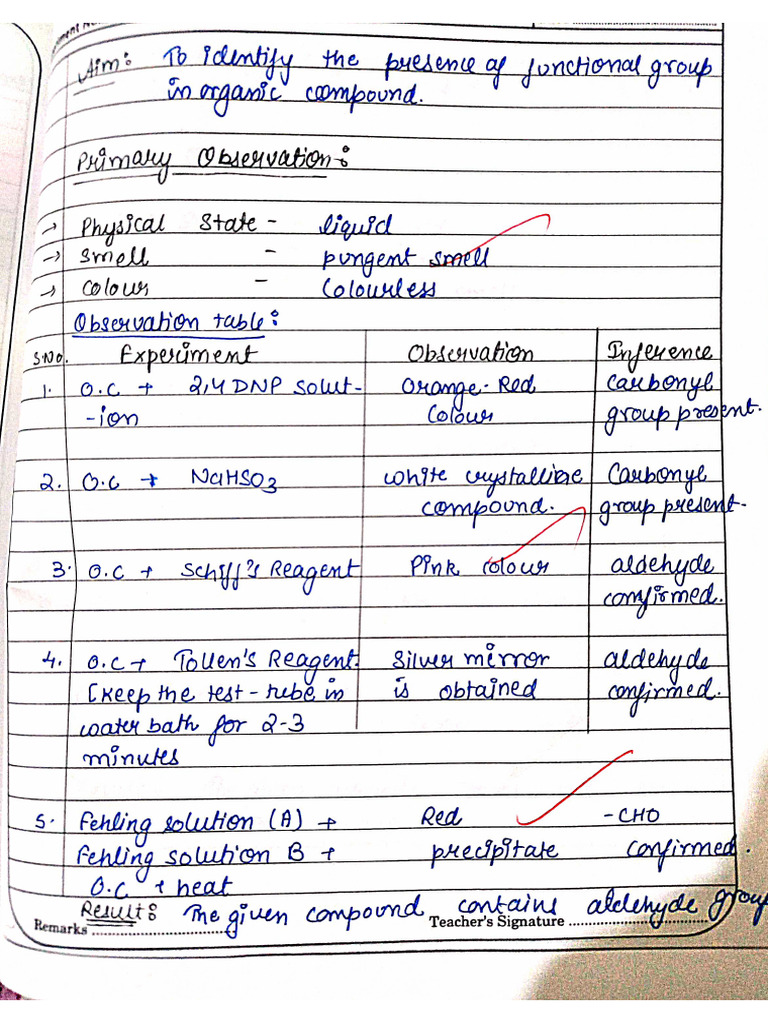 Aim: To identify the presence of functional group
in organic compound.
Primary Observation:
→ Physical State - liquid
→ Smell - pungent smell
→ Colour - Colourless
Observation table:
S.No. Experiment Observation Inference
1. O.C + 2,4 DNP Solut- Orange-Red Carbonyl
-ion Colour group present.
2. O.C + NaHSO3 white crystalline Carbonyl
compound. group present.
3. O.C + Schiff's Reagent Pink colour aldehyde
confirmed.
4. O.C + Tollen's Reagent. Silver mirror aldehyde
[Keep the test-tube in is obtained confirmed.
water bath for 2-3
minutes
5. Fehling solution (A) + Red -CHO
Fehling solution B + precipitate confirmed.
O.C + heat
Result: The given compound contains aldehyde group
Remarks Teacher's Signature